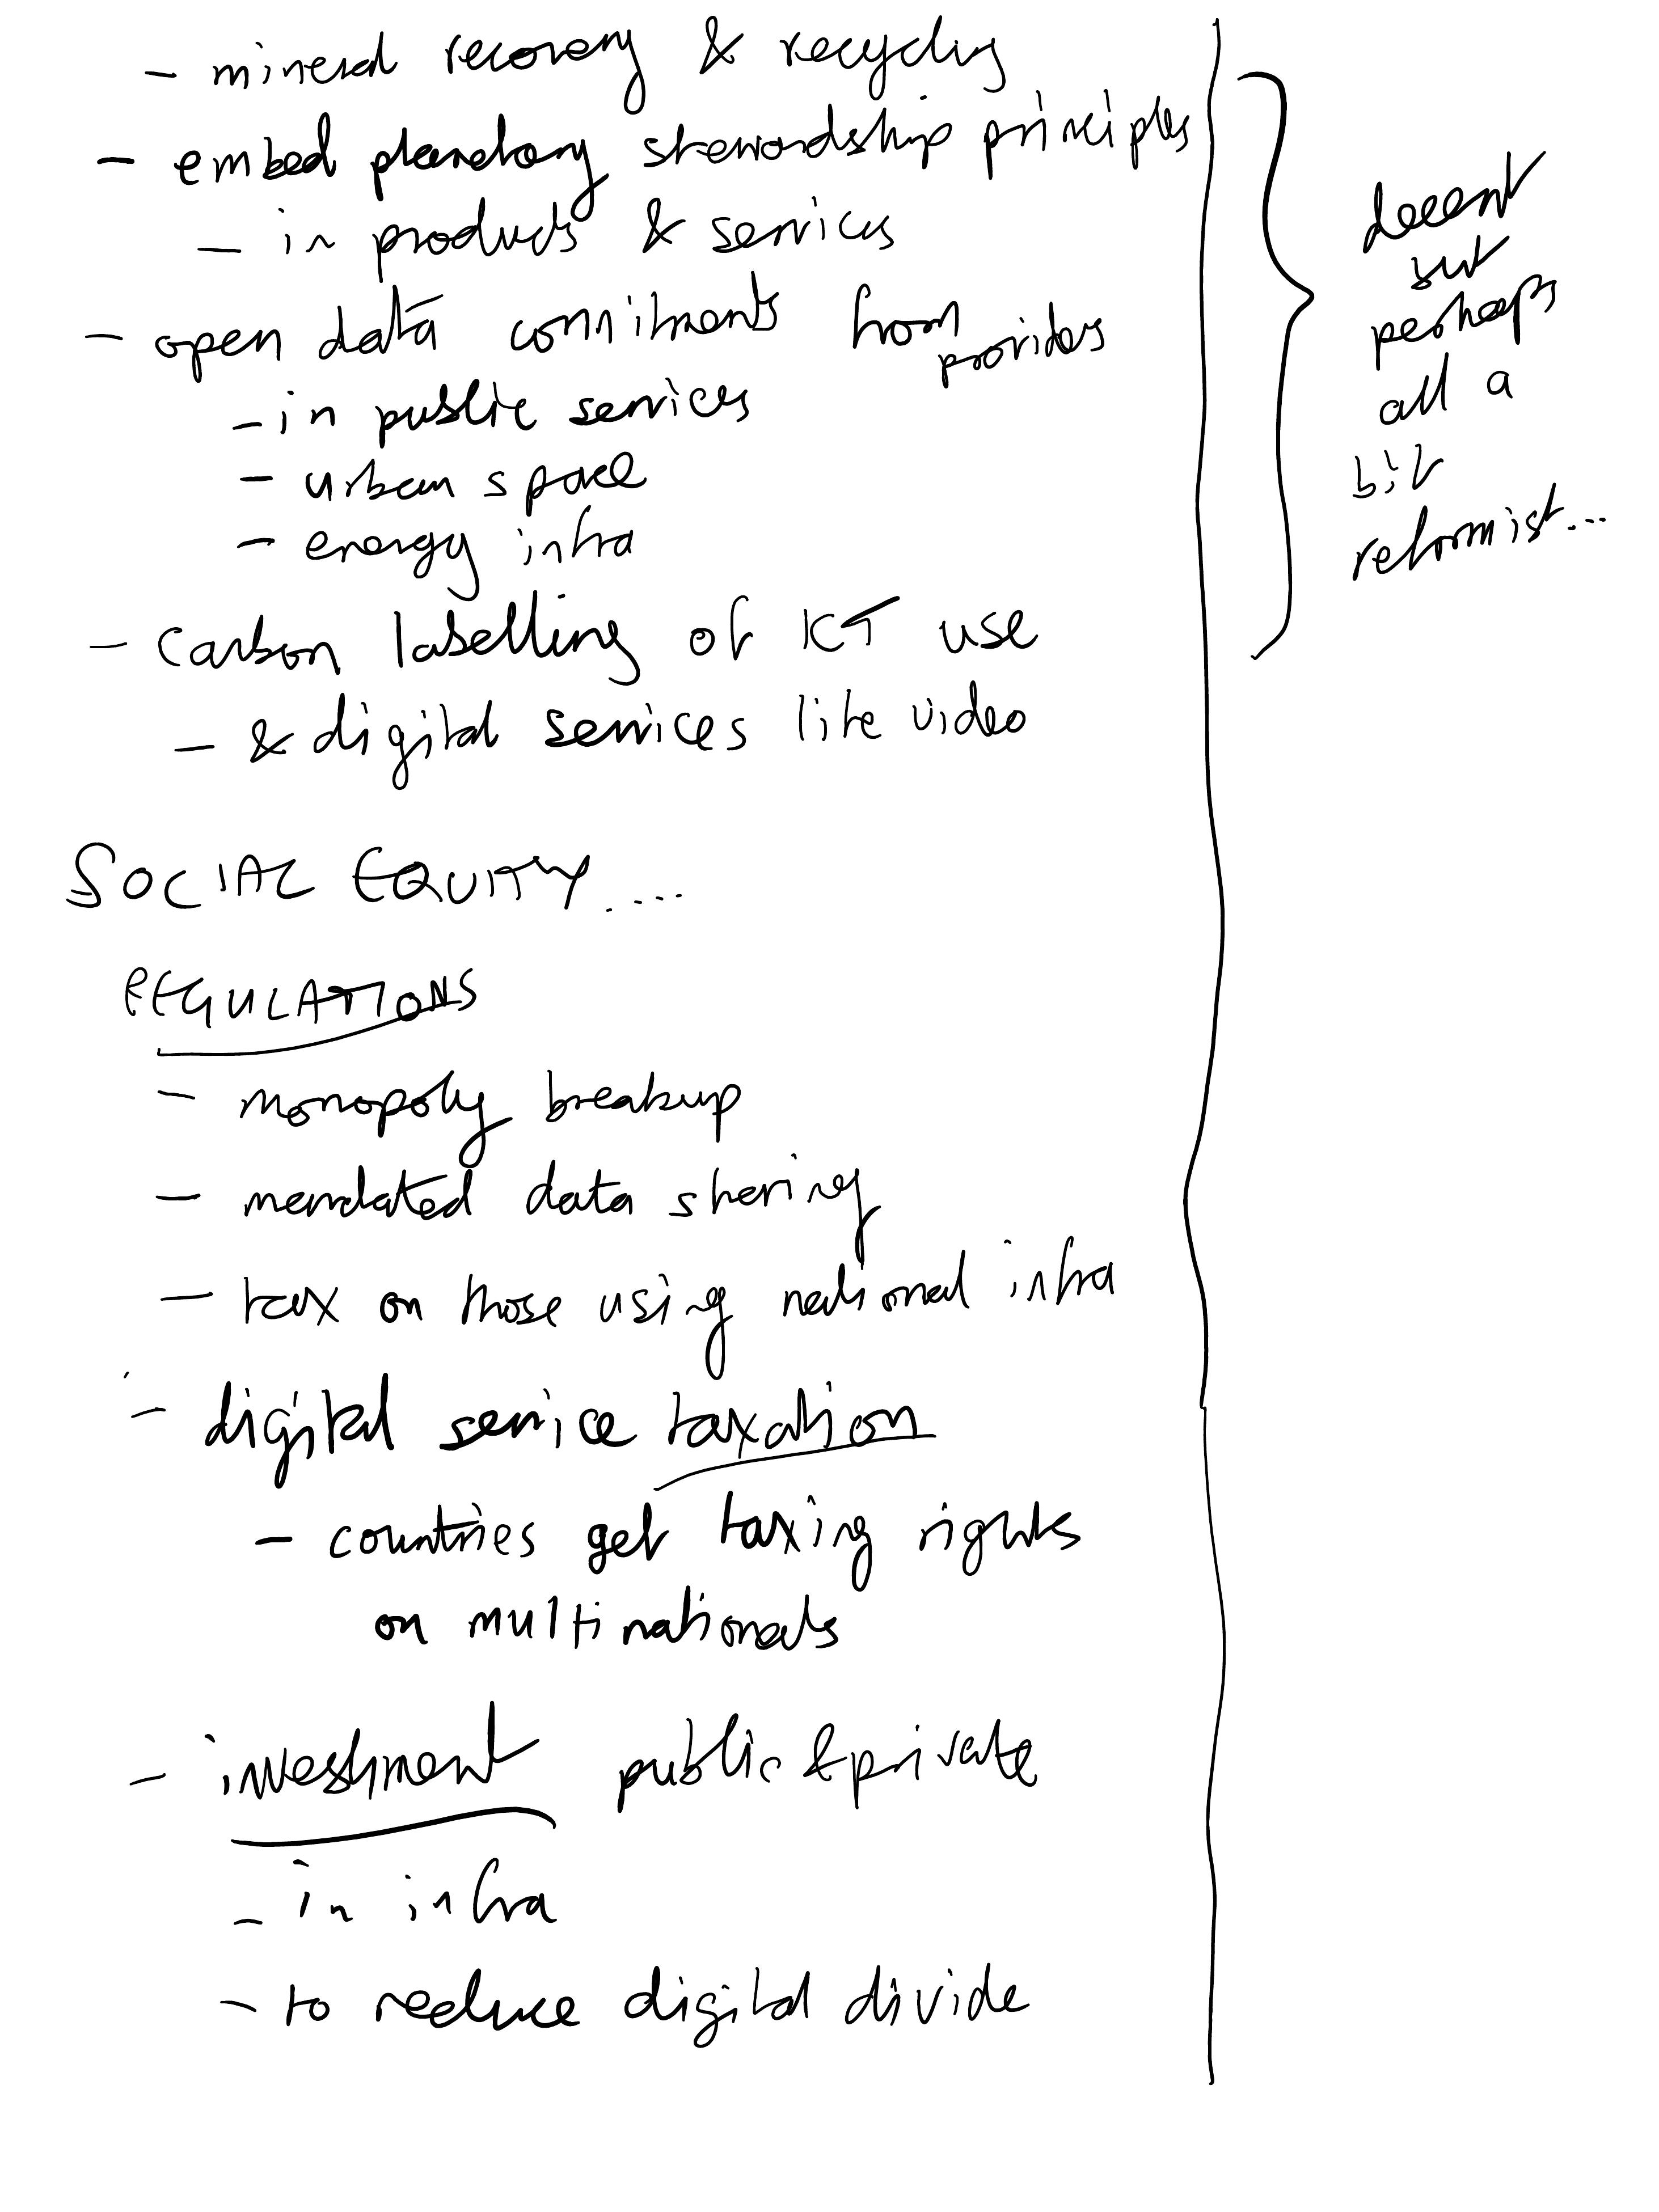 - mineral recovery & recycling
- embed planetary stewardship principles
- in products & services
- open data commitments from providers
- in public services
- urban space
- energy infra
- carbon labelling of ICT use
- & digital services like video
SOCIAL EQUITY....
REGULATIONS
- monopoly breakup
- mandated data sharing
- tax on those using national infra
- digital service taxation
- countries get taxing rights
on multinationals
- investment public & private
- in infra
- to reduce digital divide
decent
but
perhaps
all a
bit
reformist...